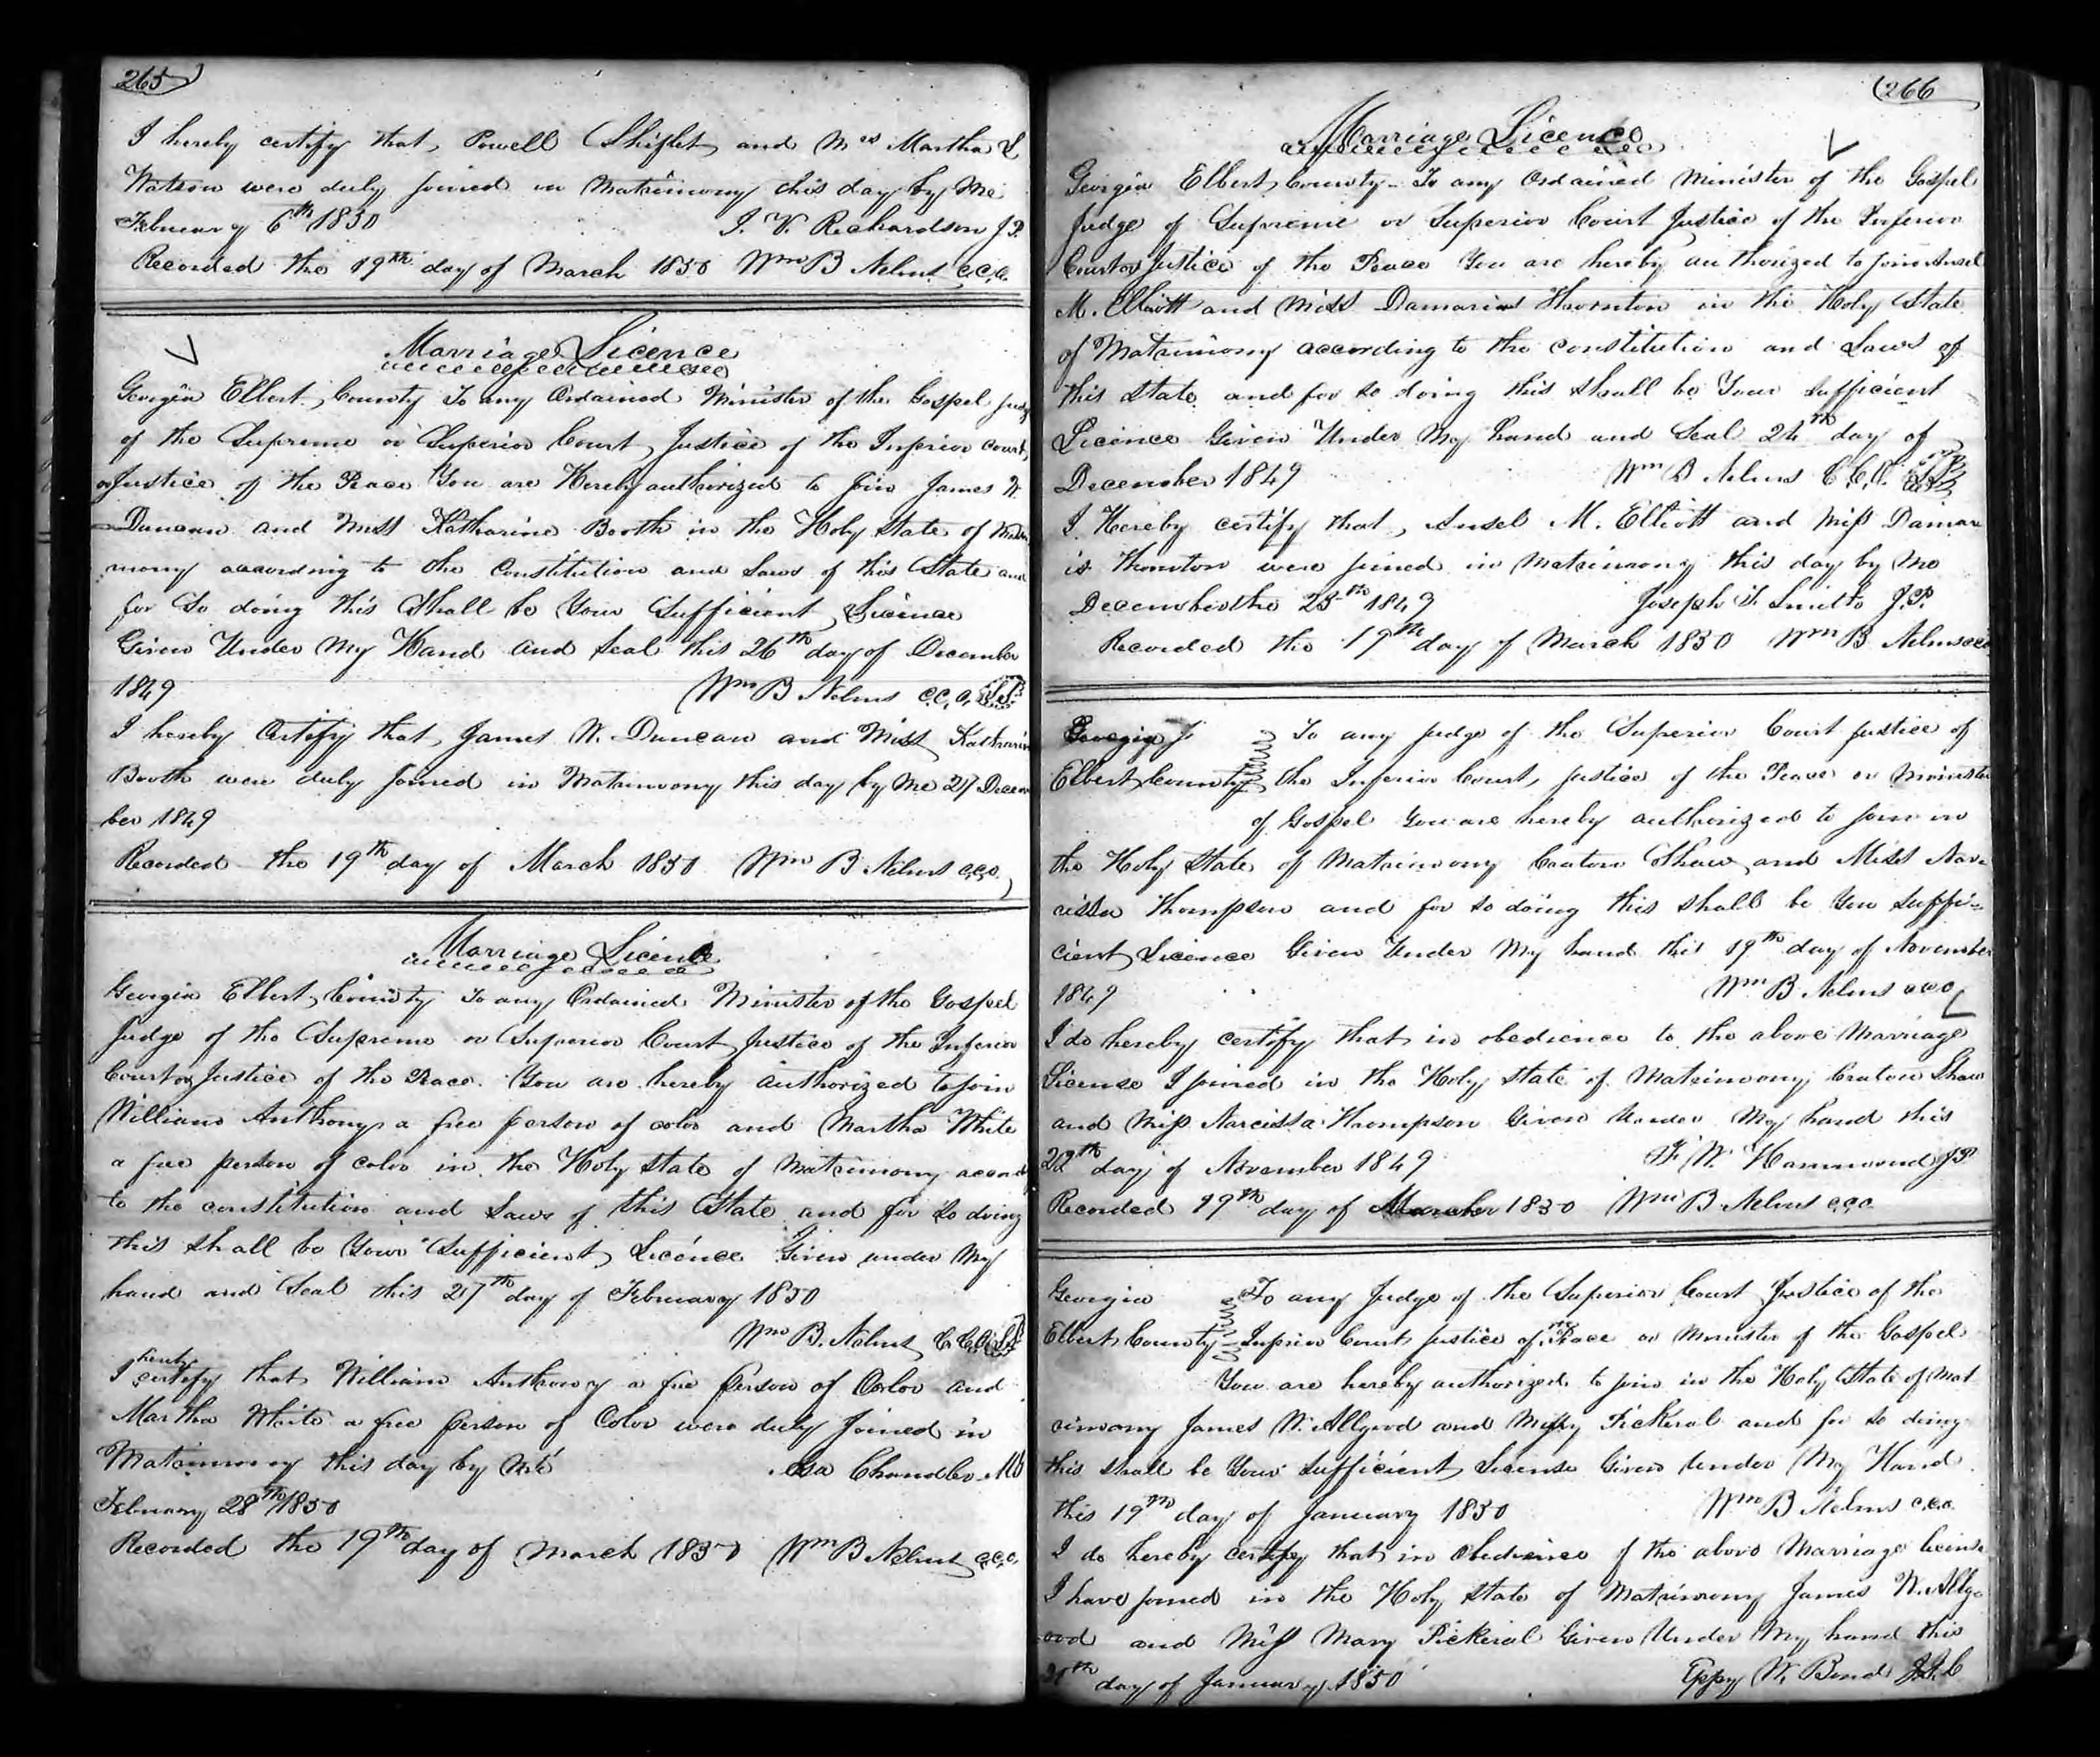 265
I hereby certify that Powell Shiflet and Mrs Martha L
Watson were duly joined in Matrimony this day by Me
February 6th 1850 J. V. Richardson J.P.
Recorded the 19th day of March 1850 Wm B Nelms c.c.o.
Marriage Licence
Georgia Elbert County To any Ordained Minister of the Gospel Judge
of the Supreme or Superior Court Justice of the Inferior court
or Justice of the Peace You are Hereby authorized to join James W.
Duncan and Miss Katharine Booth in the Holy State of Matri
mony according to the Constitution and Laws of this State and
for So doing this Shall be Your Sufficient Licence
Given Under My Hand and Seal this 26th day of December
1849 Wm B Nelms c.c.o. L.S.
I hereby Certify that James W. Duncan and Miss Katharine
Booth were duly joined in Matrimony this day by Me 27 Decem
ber 1849
Recorded the 19th day of March 1850 Wm B Nelms c.c.o.
Marriage Licence
Georgia Elbert County To any Ordained Minister of the Gospel
Judge of the Supreme or Superior Court Justice of the Inferior
Court or Justice of the Peace. You are hereby authorized to join
William Anthony a free person of color and Martha White
a free person of color in the Holy State of Matrimony accord
to the constitution and Laws of this State and for So doing
this shall be Your Sufficient Licence Given under My
hand and Seal this 27th day of February 1850
Wm B. Nelms C.C.O. L.S.
I hereby certify that William Anthony a free person of Color and
Martha White a free person of Color were duly joined in
Matrimony this day by Me Asa Chandler MG
February 28th 1850
Recorded the 19th day of March 1850 Wm B Nelms c.c.o.
266
Marriage Licence
Georgia Elbert County To any Ordained Minister of the Gospel
Judge of Supreme or Superior Court Justice of the Inferior
Court or Justice of the Peace You are hereby authorized to join Ansel
M. Elliott and Miss Damaris Thornton in the Holy State
of Matrimony according to the constitution and Laws of
this State and for so doing this shall be Your sufficient
Licence Given Under My hand and Seal 24th day of
December 1849 Wm B Nelms C.C.O. L.S.
I Hereby certify that Ansel M. Elliott and Miss Damar
is Thornton were joined in Matrimony this day by Me
December the 25th 1849 Joseph Smith J.P.
Recorded the 19th day of March 1850 Wm B Nelms cco
Georgia To any judge of the Superior Court justice of
Elbert County the Inferior Court, justice of the Peace or Minister
of Gospel You are hereby authorized to join in
the Holy State of Matrimony Craton Shaw and Miss Nar
cissa Thompson and for so doing this shall be You suffi-
cient Licence Given Under My hand this 19th day of November
1849 Wm B Nelms c.c.o
I do hereby certify that in obedience to the above Marriage
License I joined in the Holy state of Matrimony Craton Shaw
and Miss Narcissa Thompson Given Under My hand this
22th day of November 1849 F. W. Hammond J.P.
Recorded 19th day of March 1850 Wm B Nelms c.c.o.
Georgia To any Judge of the Superior Court Justice of the
Elbert County Inferior Court Justice of the Peace or Minister of the Gospel
You are hereby authorized to join in the Holy State of Mat
rimony James W. Allgood and Pickeral and for so doing
this shall be Your Sufficient License Given Under My Hand
this 19th day of January 1850 Wm B Nelms c.c.o.
I do hereby certify that in Obedience of the above Marriage licens
I have joined in the Holy State of Matrimony James W. Allgo
ood and Miss Mary Pickeral Given Under My hand this
day of January 1850 Eppy W. Bond J.I.C